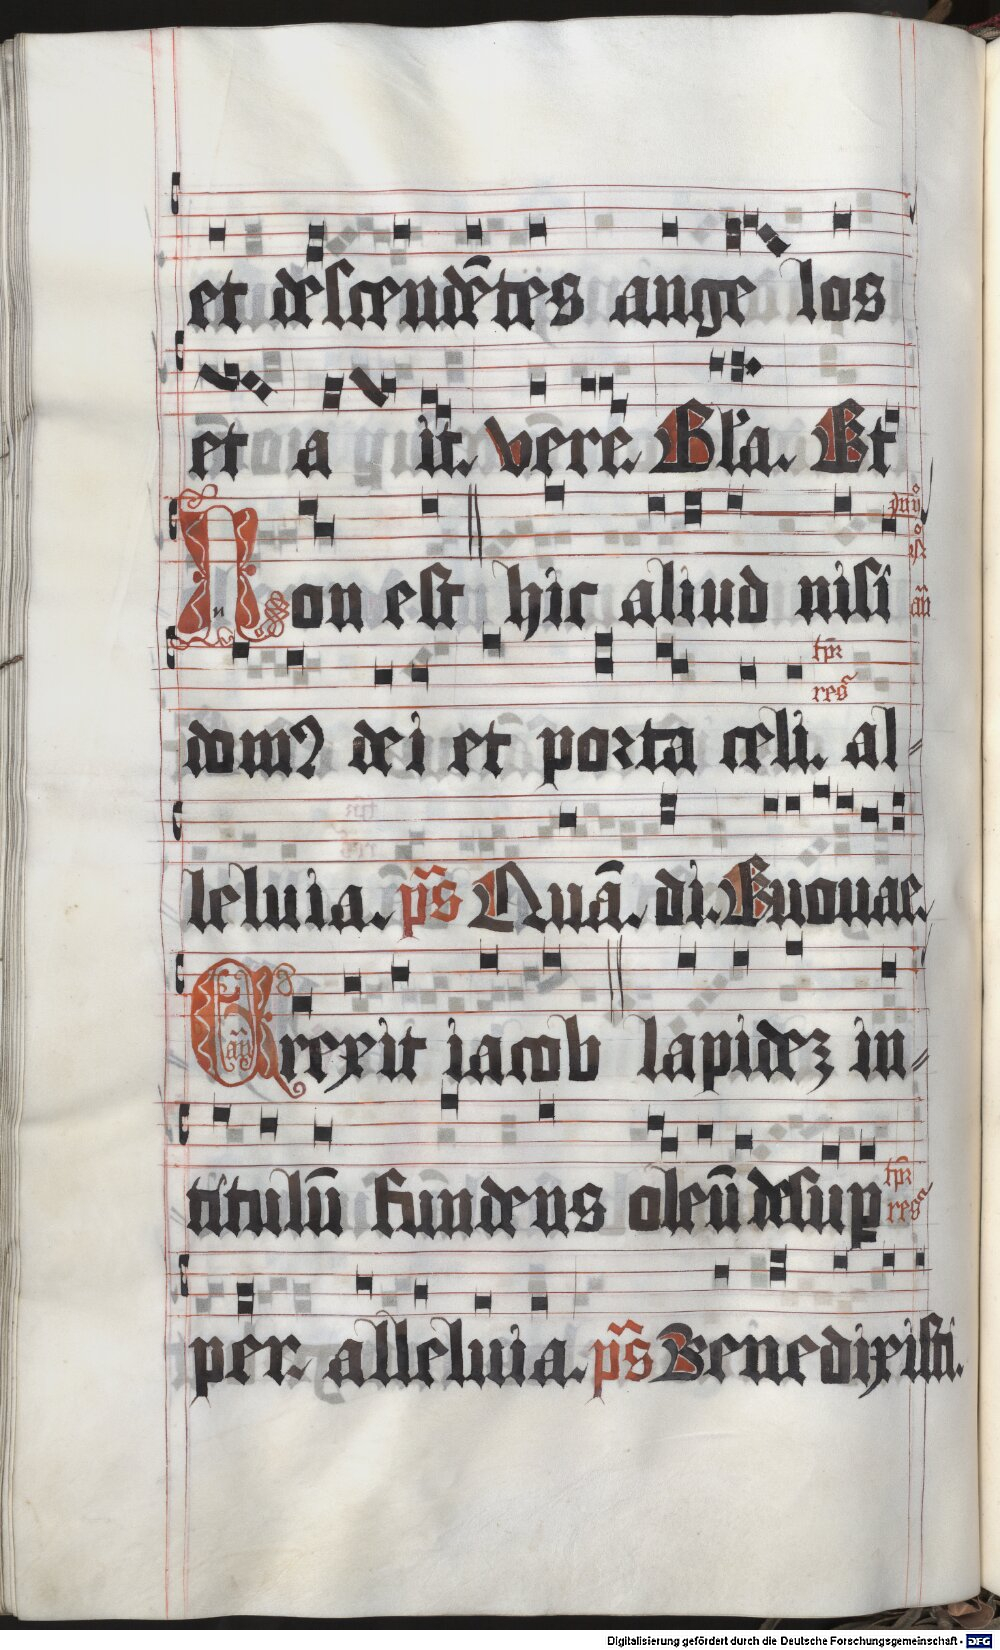 et descendētes angelos
et a it. vere. Gl'a. Et
Non est hic aliud nisi
domꝰ dei et porta celi. al
tp̄r
res
leluia. p̄s Quā. di. Euouae.
Erexit iacob lapidez in
an̄
titulū fundens oleū desup
tp̄r
res
per. alleluia. p̄s Benedixisti.
Digitalisierung gefördert durch die Deutsche Forschungsgemeinschaft - DFG